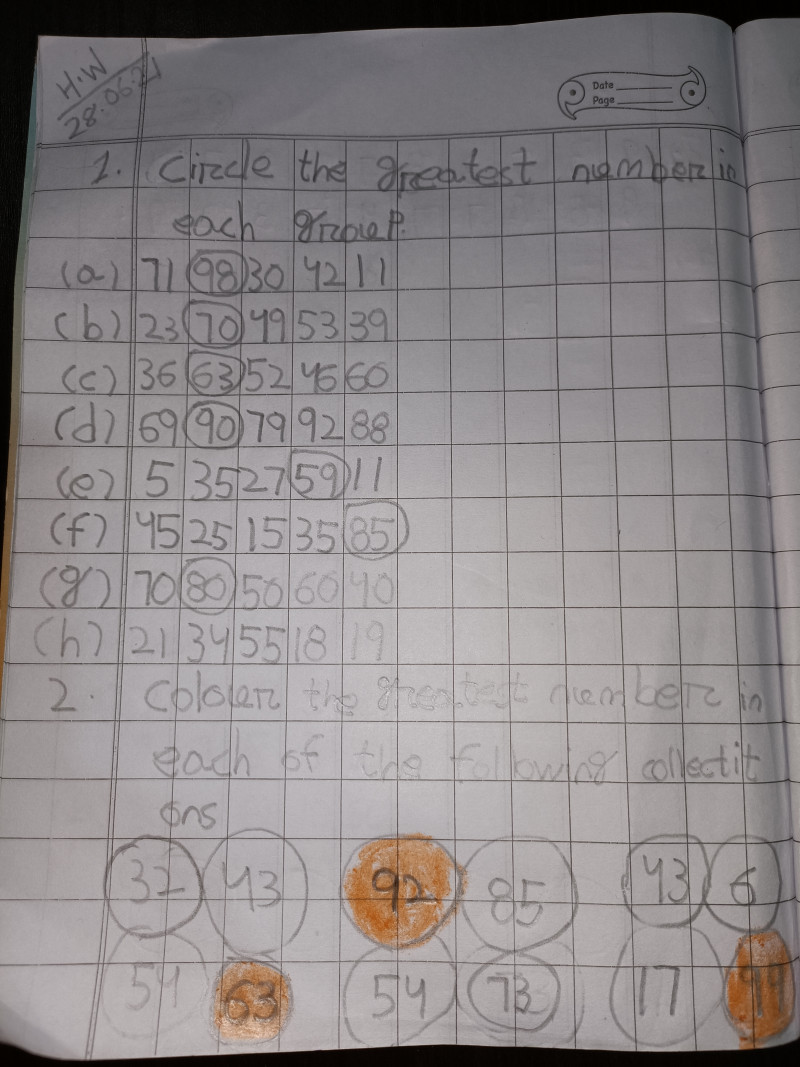 H.W
28.06.21
Date
Page
1. Circle the greatest number in
each group.
(a) 71 98 30 42 11
(b) 23 70 49 53 39
(c) 36 63 52 46 60
(d) 69 90 79 92 88
(e) 5 35 27 59 11
(f) 45 25 15 35 85
(g) 70 80 50 60 40
(h) 21 34 55 18 19
2. Colour the greatest number in
each of the following collectit
ons
32 43 92 85 43 6
54 63 54 73 17